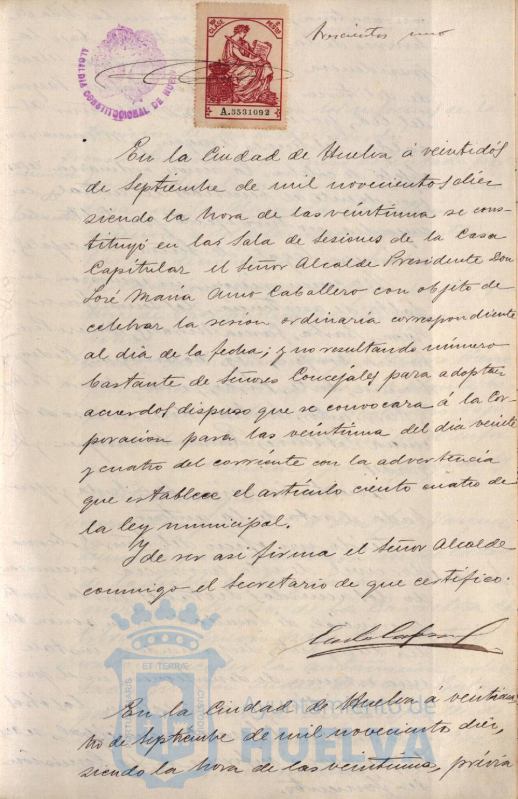 Trescientos uno
ALCALDÍA CONSTITUCIONAL DE HUELVA
A.3531092
En la Ciudad de Huelva á veintidós
de Septiembre de mil novecientos diez
siendo la hora de las veintiuna se cons-
tituyó en las Sala de Sesiones de la Casa
Capitular el Señor Alcalde Presidente Don
José María Amo Caballero con objeto de
celebrar la sesión ordinaria correspondiente
al dia de la fecha; y no resultando número
bastante de Señores Concejales para adoptar
acuerdos dispuso que se convocara á la Cor-
poración para las veintiuna del dia veinte
y cuatro del corriente con la advertencia
que establece el artículo ciento cuatro de
la ley municipal.
Y de ser asi firma el Señor Alcalde
conmigo el Secretario de que certifico.
En la Ciudad de Huelva á veinticua-
tro de Septiembre de mil novecientos diez,
siendo la hora de las veintiuna, prévia
ET TERRÆ
Ayuntamiento de
HUELVA